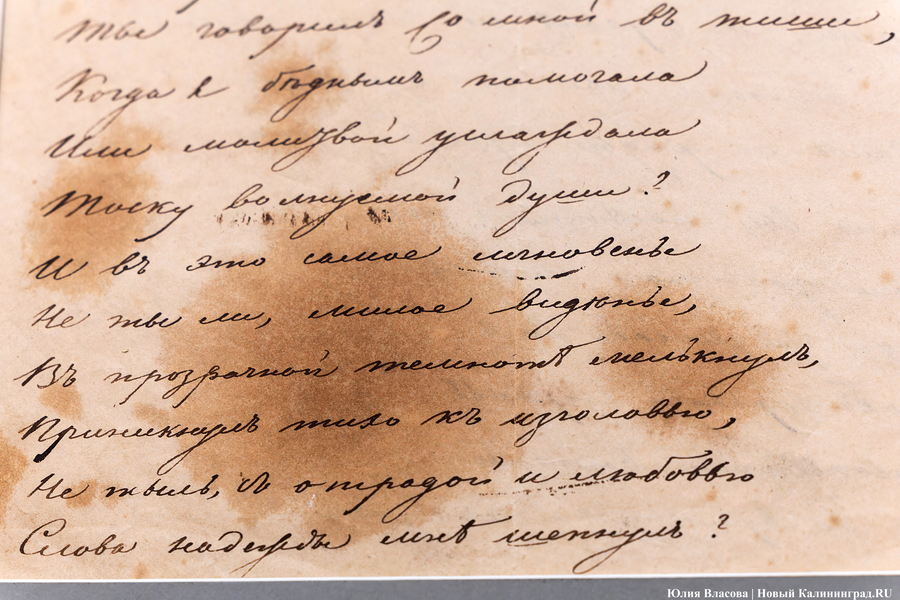 Ты говорилъ со мной въ тиши,
Когда я бѣднымъ помогала
Или молитвой услаждала
Тоску волнуемой души?
И въ это самое мгновенье
Не ты ли, милое видѣнье,
Въ прозрачной темнотѣ мелькнулъ,
Приникнулъ тихо къ изголовью,
Не тылъ, съ отрадой и любовью
Слова надежды мнѣ шепнулъ?
Юлия Власова | Новый Калининград.RU